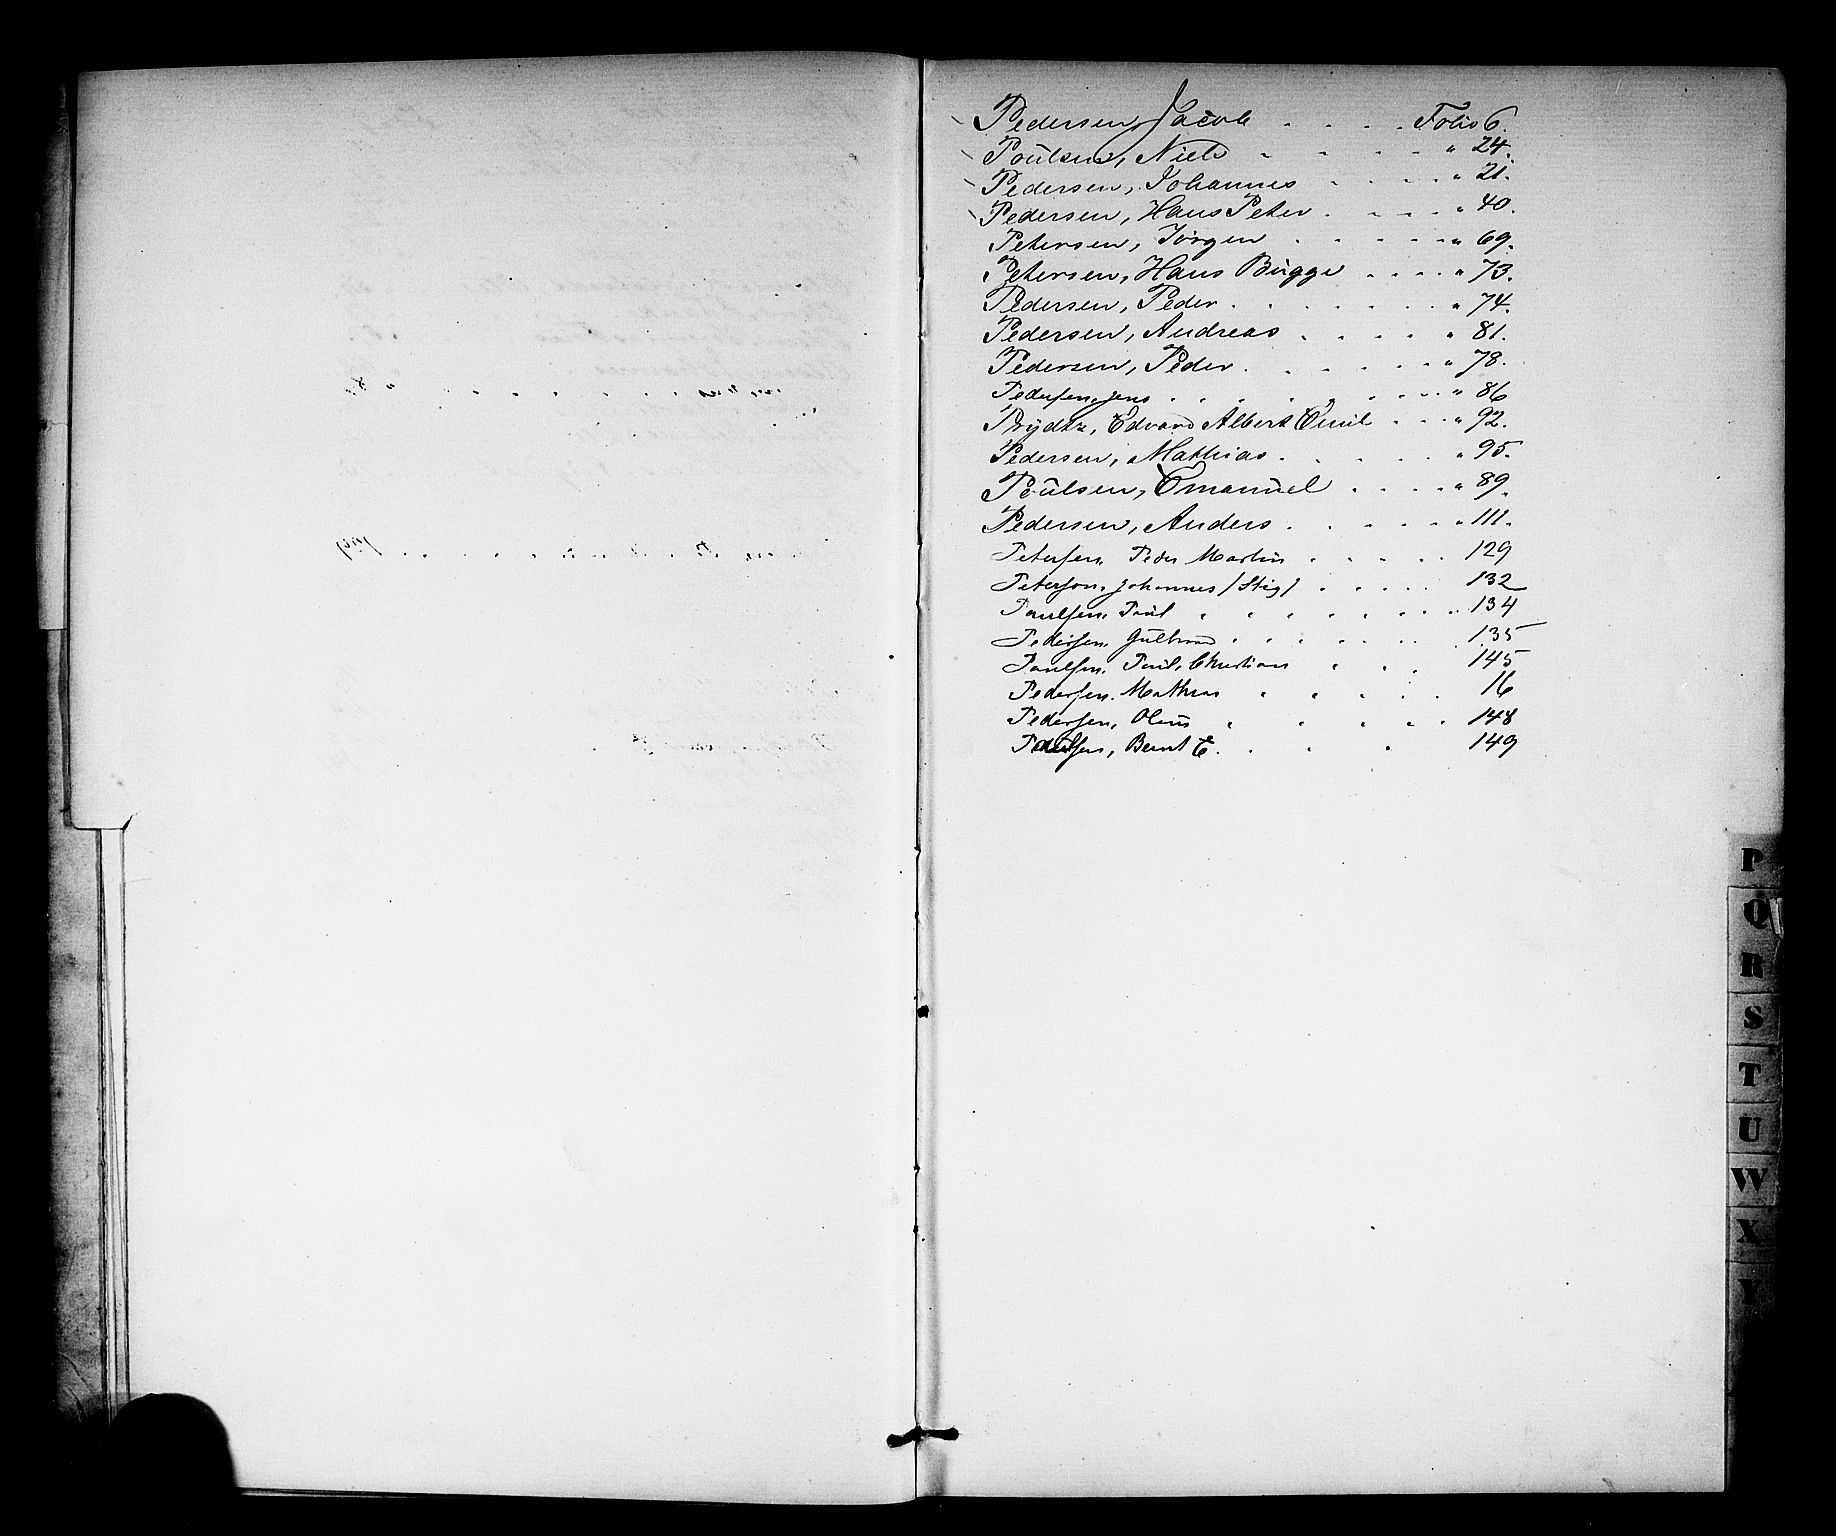 Pedersen, Jacob . . . . Folio 6.
Poulsen, Niels . . . . " 24.
Pedersen, Johannes . . . . " 21.
Pedersen, Hans Peter . . . . " 40.
Petersen, Jörgen . . . . . " 69.
Petersen, Hans Bugge . . . . " 73.
Pedersen, Peder . . . . . . " 74.
Pedersen, Andreas . . . . " 81.
Pedersen, Peder . . . . . " 78.
Pedersen, Jens . . . . . . . . " 86
Prydtz, Edvard Albert Emil . . . " 92.
Pedersen, Mathias . . . . . " 95.
Poulsen, Emanuel . . . . " 89.
Pedersen, Anders . . . . . " 111.
Petersen, Peder Martin . . . . . 129
Peterson, Johannes (Stig) . . . . . 132
Paulsen, Paul . . . . . . . 134
Pedersen, Gulbrand . . . . . . 135
Paulsen, Paul Christian . . . 145
Pedersen, Mathias . . . . . 16
Pedersen, Olaus . . . . . 148
Paulsen, Bernt E. . . . 149
P
Q
R
S
T
U
W
X
Y